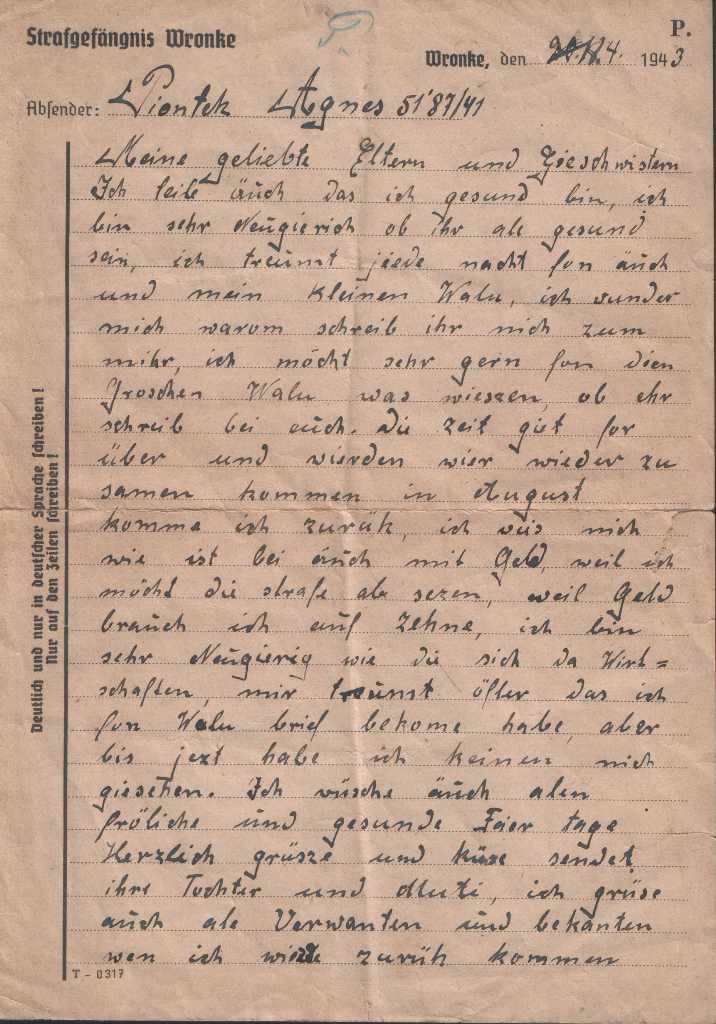 Strafgefängnis Wronke
P.
P.
Wronke, den 4. 1943
Absender: Piontek Agnes 51'87/41
Meine geliebte Eltern und Gieschwistern
Ich teile äuch das ich gesund bin, ich
bin sehr Neugierich ob ihr ale gesund
sein, ich treumt jiede nacht fon äuch
und mein kleinen Walu, ich wunder
mich warom schreib ihr nich zum
mihr, ich möcht sehr gern fon dien
Groschen Walu was wieszen, ob ehr
schreib bei euch. Die zeit git for
über und wierden wier wieder zu
samen kommen in August
komme ich zurük, ich weis nich
wie ist bei äuch mit Geld, weil ich
möcht die strafe ab sezen, weil Geld
brauch ich auf Zehne, ich bin
sehr Neugierig wie die sich da Wirt=
schaften, mir treumt öfter das ich
fon Walu brief bekome habe, aber
bis jezt habe ich keinen nich
giesehen. Ich wüsche äuch alen
fröliche und gesunde Faier tage
Herzlich grüsze und küse sendet
ihre Tochter und Muti, ich grüse
auch ale Verwanten und bekanten
wen ich zurük kommen
Deutlich und nur in deutscher Sprache schreiben!
Nur auf den Zeilen schreiben!
T - 0317